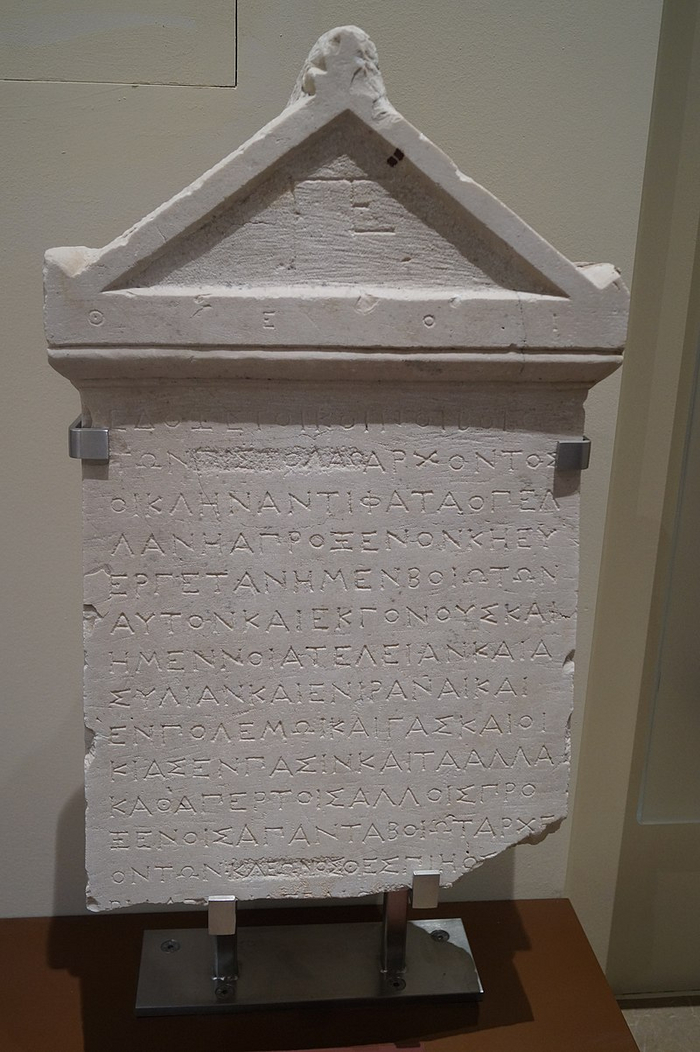 ΘΕΟΙ
ΕΔΟΞΕ ΤΟΙ
ΑΡΧΟΝΤΟΣ
ΟΙΚΛΗΝΑΝΤΙΦΑΤΑΟΠΕΛ
ΛΑΝΗΑΠΡΟΞΕΝΟΝΚΗΕΥ
ΕΡΓΕΤΑΝΗΜΕΝΒΟΙΩΤΩΝ
ΑΥΤΟΝΚΑΙΕΚΓΟΝΟΥΣΚΑΙ
ΗΜΕΝΝΟΙΑΤΕΛΕΙΑΝΚΑΙΑ
ΣΥΛΙΑΝΚΑΙΕΝΙΡΑΝΑΙΚΑΙ
ΕΝΠΟΛΕΜΩΙΚΑΙΓΑΣΚΑΙΟΙ
ΚΙΑΣΕΝΠΑΣΙΝΚΑΙΤΑΑΛΛΑ
ΚΑΘΑΠΕΡΤΟΙΣΑΛΛΟΙΣΠΡΟ
ΞΕΝΟΙΣΑΠΑΝΤΑΒΟΙΩΤΑΡΧΕ
ΟΝΤΩΝΚΛΕΩΝΟΣΘΕΣΠΙΗΟΣ